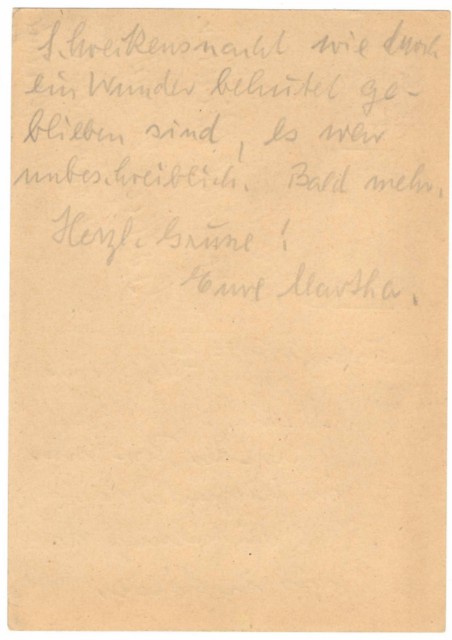 Schreckensnacht wie durch
ein Wunder behütet ge-
blieben sind, es war
unbeschreiblich. Bald mehr.
Herzl. Grüße!
Eure Martha.